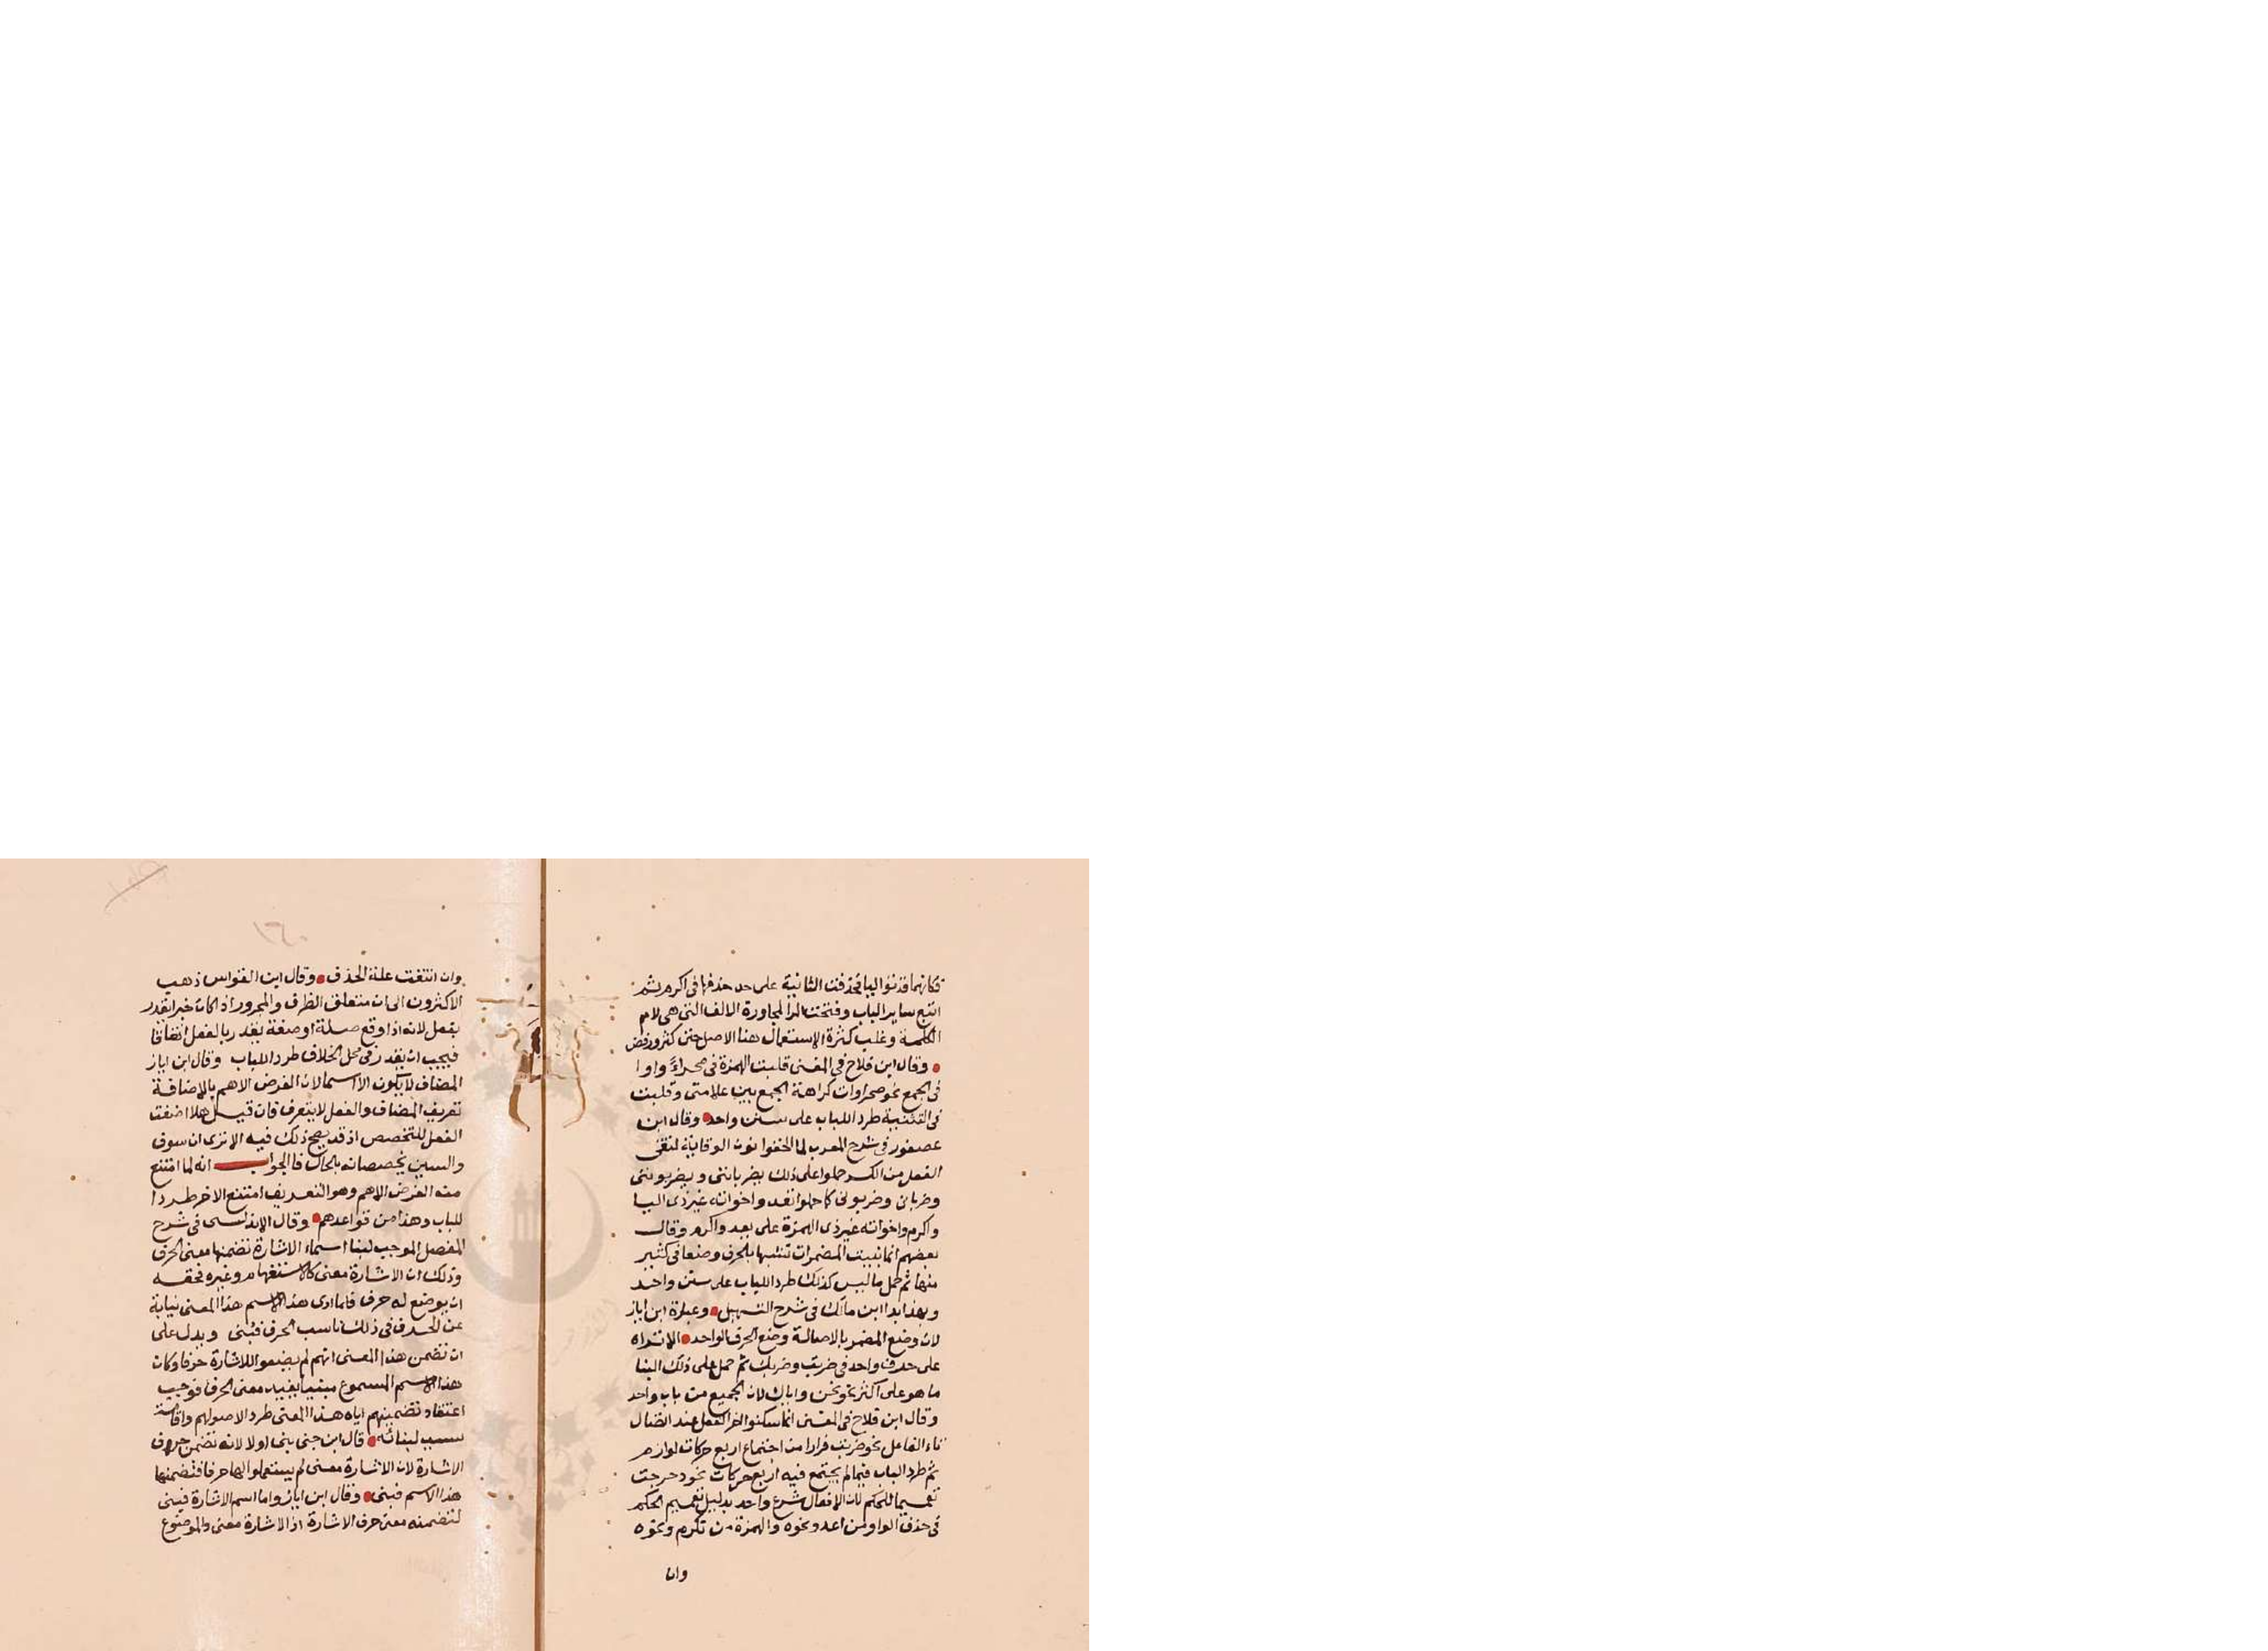 فكانهما قدنوا اليا فحذفت الثانية على حد حذفها فى اكرم ثم
اتبع ساير الباب وفتحت الرا لمجاورة الالف التى هى لام
الكلمة وغلب كثرة الاستعمال هنا الاصل حتى كثر ورفض
وقال ابن فلاح فى المغنى قلبت الهمزة فى صحراء واوا
فى الجمع نحو صحراوات كراهة الجمع بين علامتى وقلبت
فى التثنية طردا للباب على سنن واحد وقال ابن
عصفور فى شرح المقرب لما الحقوا نون الوقاية لتقى
الفعل من الكسر حملوا على ذلك يضربانتى ويضربوننى
وضربانى وضربونى كما حملوا نعد واخواته غير ذى اليا
واكرم واخواته غير ذى الهمزة على يعد واكرم وقال
بعضهم انما بنيت المضمرات تشبها بالحرف وضعا فى كثير
منها ثم حمل ما ليس كذلك طردا للباب على سنن واحد
وبهذا بدا ابن مالك فى شرح التسهيل وعبارة ابن اياز
لان وضع المضمر بالاصالة وضع الحرف الواحد الا تراه
على حرف واحد فى ضربت وضربك ثم حمل على ذلك البنا
ما هو على اكثر نحو نحن واياك لان الجميع من باب واحد
وقال ابن فلاح فى المغنى انما سكنوا اخر الفعل عند اتصال
تاء الفاعل نحو ضربت فرارا من اجتماع اربع حركات لوازم
ثم طرد الباب فيما لم يجتمع فيه اربع حركات نحو دحرجت
تعميما للحكم لان الافعال شرع واحد بدليل تعميم الحكم
فى حذف الواو من اعد ونحوه والهمزة من تكرم ونحوه
وان
وان انتفت علة الحذف وقال ابن القواس ذهب
الاكثرون الى ان متعلق الظرف والمجرور اذا كان خبرا يقدر
بفعل لانه اذا وقع صلة او صفة يقدر بالفعل اتفاقا
فيجب ان يقدر فى محل الخلاف طردا للباب وقال ابن اياز
المضاف لا يكون الا اسما لان الغرض الاهم بالاضافة
تعريف المضاف والفعل لا يتعرف فان قيل هلا اضفت
الفعل للتخصص اذ قد يصح ذلك فيه الا ترى ان سوف
والسين يخصصانه بالحال فالجواب انه لما امتنع
منه الغرض الاهم وهو التعريف امتنع الاخر طردا
للباب وهذا من قواعدهم وقال الاندلسى فى شرح
المفصل الموجب لبنا اسماء الاشارة تضمنها معنى الحرف
وذلك ان الاشارة معنى كالاستفهام وغيره فحقه
ان يوضع له حرف فلما ادى هذا الاسم هذا المعنى نيابة
عن الحرف فى ذلك ناسب الحرف فبنى ويدل على
ان تضمن هذا المعنى انهم لم يضعوا للاشارة حرفا وكان
هذا الاسم المسموع مبنيا يفيد معنى الحرف فوجب
اعتقاد تضمينهم اياه هذا المعنى طردا لاصولهم واقامة
سبب لبنائه قال ابن جنى بنى اولا لانه تضمن حرف
الاشارة لان الاشارة معنى لم يستعملوا لها حرفا فتضمنها
هذا الاسم فبنى وقال ابن اياز واما اسم الاشارة فبنى
لتضمنه معنى حرف الاشارة اذ الاشارة معنى والموضوع